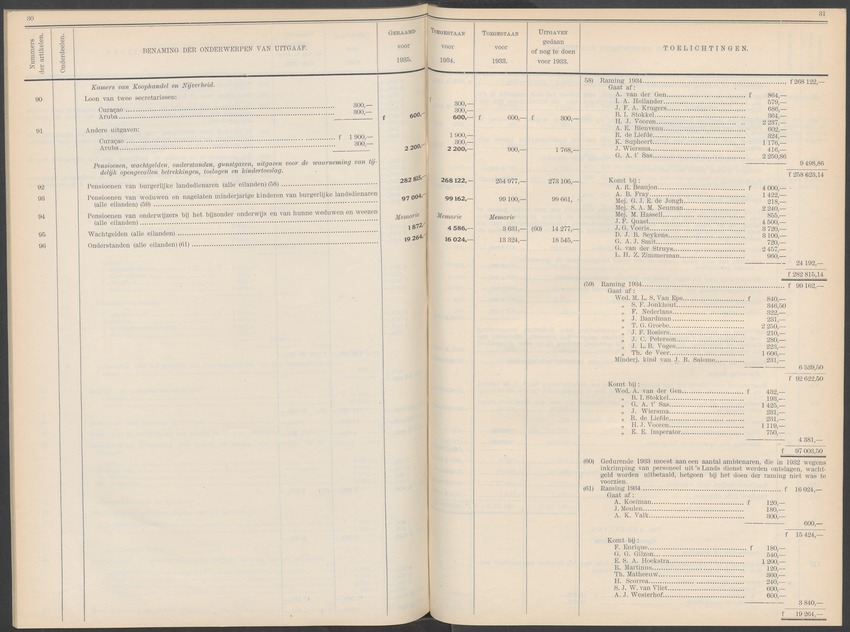 30
31
Nummers der artikelen.
Onderdeelen.
BENAMING DER ONDERWERPEN VAN UITGAAF.
GERAAMD voor 1935.
TOEGESTAAN voor 1934.
TOEGESTAAN voor 1933.
UITGAVEN gedaan of nog te doen voor 1933.
TOELICHTINGEN.
Kamers van Koophandel en Nijverheid.
90 Loon van twee secretarissen:
Curaçao 300,— 300,—
Aruba 300,— f 600,— 300,— 600,— f 600,— f 300,—
91 Andere uitgaven:
Curaçao f 1 900,— 1 900,—
Aruba 300,— 2 200,— 300,— 2 200,— 900,— 1 768,—
Pensioenen, wachtgelden, onderstanden, gunstgaven, uitgaven voor de waarneming van tij-
delijk opengevallen betrekkingen, toelagen en kindertoeslag.
92 Pensioenen van burgerlijke landsdienaren (alle eilanden) (58) 282 815,— 268 122,— 254 977,— 273 106,—
93 Pensioenen van weduwen en nagelaten minderjarige kinderen van burgerlijke landsdienaren
(alle eilanden) (59) 97 004,— 99 162,— 99 100,— 99 661,—
94 Pensioenen van onderwijzers bij het bijzonder onderwijs en van hunne weduwen en weezen
(alle eilanden) Memorie Memorie Memorie
95 Wachtgelden (alle eilanden) 1 872,— 4 586,— 3 631,— (60) 14 277,—
96 Onderstanden (alle eilanden) (61) 19 264,— 16 024,— 13 324,— 18 545,—
58) Raming 1934 f 268 122,—
Gaat af:
A. van der Gen f 864,—
L. A. Hellander 579,—
J. F. A. Krugers 686,—
B. I. Stokkel 364,—
H. J. Vooren 2 237,—
A. E. Bienvenu 602,—
R. de Liefde 324,—
K. Saphoert 1 176,—
J. Wiersma 416,—
G. A. t' Sas 2 250,86
9 498,86
f 258 623,14
Komt bij:
A. R. Beaujon f 4 000,—
A. B. Fray 1 422,—
Mej. G. J. E. de Jongh 218,—
Mej. S. A. M. Neuman 2 240,—
Mej. M. Hassell 855,—
J. F. Quast 4 500,—
J. G. Voeris 3 720,—
D. J. B. Seykens 3 100,—
G. A. J. Smit 720,—
G. van der Struys 2 457,—
L. H. Z. Zimmerman 960,—
24 192,—
f 282 815,14
(59) Raming 1934 f 99 162,—
Gaat af:
Wed. M. L. S. Van Eps f 840,—
„ S. F. Jonkhout 346,50
„ F. Nederlans 322,—
„ J. Baardman 231,—
„ T. G. Groebe 2 250,—
„ J. F. Rosiers 210,—
„ J. C. Peterson 280,—
„ J. L. B. Voges 223,—
„ Th. de Veer 1 606,—
Minderj. kind van J. R. Salome 231,—
6 539,50
f 92 622,50
Komt bij:
Wed. A. van der Gen f 432,—
„ B. I. Stokkel 193,—
„ G. A. t' Sas 1 425,—
„ J. Wiersma 231,—
„ R. de Liefde 231,—
„ H. J. Vooren 1 119,—
„ E. E. Imperator 750,—
4 381,—
f 97 003,50
(60) Gedurende 1933 moest aan een aantal ambtenaren, die in 1932 wegens
inkrimping van personeel uit 's Lands dienst werden ontslagen, wacht-
geld worden uitbetaald, hetgeen bij het doen der raming niet was te
voorzien.
(61) Raming 1934 f 16 024,—
Gaat af:
A. Koeiman f 120,—
J. Meulen 180,—
A. K. Valk 300,—
600,—
f 15 424,—
Komt bij:
F. Enrique f 180,—
G. G. Gilzon 540,—
E. S. A. Hoekstra 1 200,—
R. Martinus 120,—
Th. Matheeuw 300,—
H. Scorrea 240,—
S. J. W. van Vliet 600,—
A. J. Westerhof 600,—
3 840,—
f 19 264,—